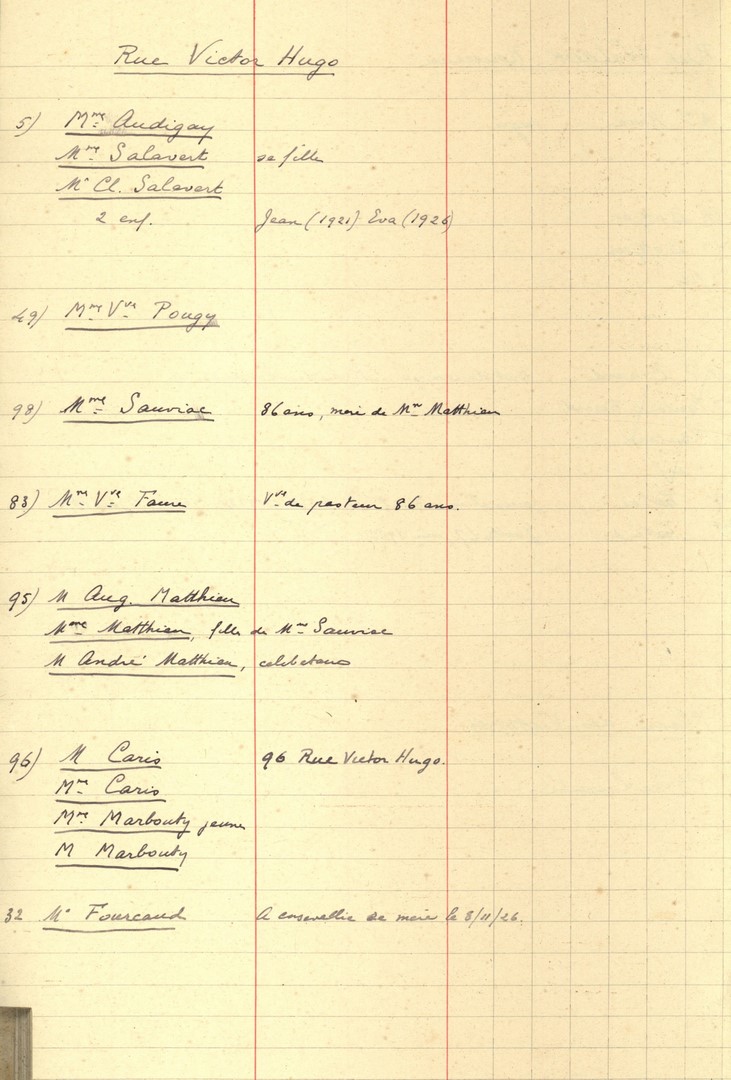 Rue Victor Hugo
5) Mme Audigay
Mme Salavert sa fille
Mr Cl. Salavert
2 enf. Jean (1921) Eva (1926)
49) Mme Vve Pougy
98) Mme Sauviac 86 ans, mère de Mme Matthieu
83) Mme Vve Faure Vve de pasteur 86 ans.
95) M Aug. Matthieu
Mme Matthieu, fille de Mme Sauviac
M André Matthieu, célibataire
96) M Caris 96 Rue Victor Hugo.
Mme Caris
Mme Marbouty jeune
M Marbouty
32 Mr Fourcaud A ensevelli sa mère le 3/11/26.